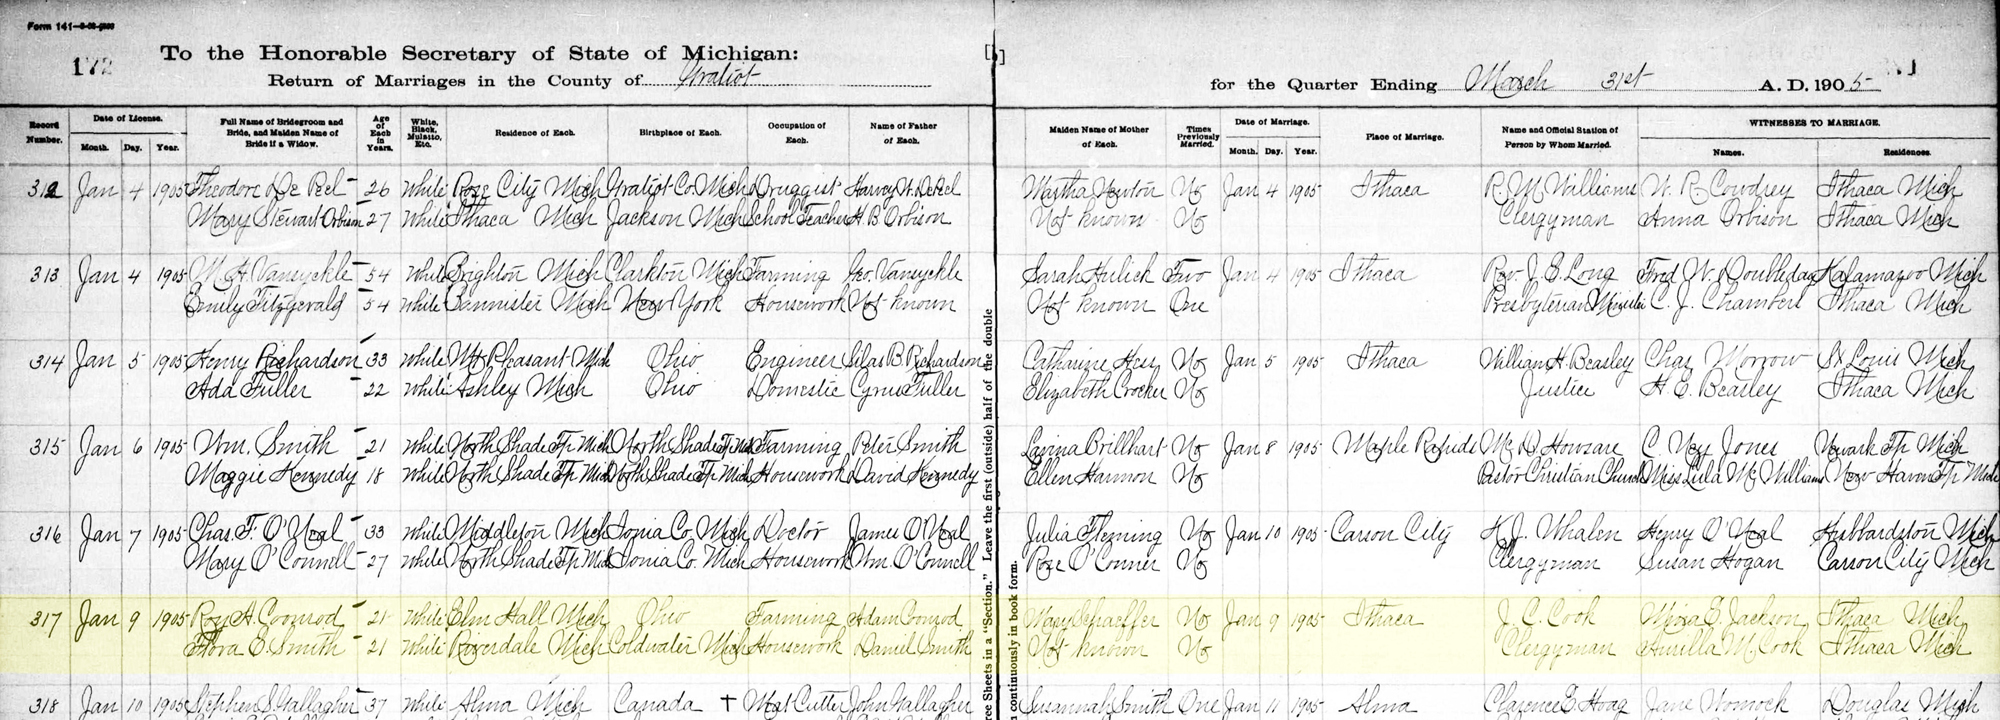 Form 141
172
To the Honorable Secretary of State of Michigan:
Return of Marriages in the County of Gratiot for the Quarter Ending March 31st A. D. 1905
Record Number. Date of License. Month. Day. Year. Full Name of Bridegroom and Bride, and Maiden Name of Bride if a Widow. Age of Each in Years. White, Black, Mulatto, Etc. Residence of Each. Birthplace of Each. Occupation of Each. Name of Father of Each. Maiden Name of Mother of Each. Times Previously Married. Date of Marriage. Month. Day. Year. Place of Marriage. Name and Official Station of Person by Whom Married. WITNESSES TO MARRIAGE. Names. Residences.
312 Jan 4 1905 Theodore De Peel 26 White Rose City Mich Gratiot Co. Mich Druggist Harvey W. DePeel Martha Newton No Jan 4 1905 Ithaca R. M. Williams W. R. Cowdrey Ithaca Mich
Mary Stewart Orbison 27 White Ithaca Mich Jackson Mich School Teacher H. B. Orbison Not known No Clergyman Anna Orbison Ithaca Mich
313 Jan 4 1905 M. H. Vansyckle 54 White Brighton Mich Clarkton Mich Farming Geo. Vansyckle Sarah Hulick Two Jan 4 1905 Ithaca Rev. J. E. Long Fred W. Doubleday Kalamazoo Mich
Emily Fitzgerald 54 White Bannister Mich New York Housework Not known Not known One Presbyterian Minister C. J. Chambers Ithaca Mich
314 Jan 5 1905 Henry Richardson 33 White Mt Pleasant Mich Ohio Engineer Silas B Richardson Catharine Hess No Jan 5 1905 Ithaca William H. Beasley Chas Morrow St Louis Mich
Ada Fuller 22 White Ashley Mich Ohio Domestic Cyrus Fuller Elizabeth Crocker No Justice H. E. Beasley Ithaca Mich
315 Jan 6 1905 Wm. Smith 21 White North Shade Tp Mich North Shade Tp Mich Farming Peter Smith Lavina Brillhart No Jan 8 1905 Maple Rapids Mc D. Howsare C. Ney Jones Newark Tp Mich
Maggie Kennedy 18 White North Shade Tp Mich North Shade Tp Mich Housework David Kennedy Ellen Harmon No Pastor Christian Church Miss Lula McWilliams New Haven Tp Mich
316 Jan 7 1905 Chas. F. O'Neal 33 White Middleton Mich Ionia Co. Mich Doctor James O'Neal Julia Fleming No Jan 10 1905 Carson City H. J. Whalen Henry O'Neal Hubbardston Mich
Mary O'Connell 27 White North Shade Tp Mich Ionia Co. Mich Housework Wm O'Connell Rose O'Conner No Clergyman Susan Hogan Carson City Mich
317 Jan 9 1905 Roy H. Coonrod 21 White Elm Hall Mich Ohio Farming Adam Coonrod Mary Schaeffer No Jan 9 1905 Ithaca J. C. Cook Mina E. Jackson Ithaca Mich
Flora E. Smith 21 White Riverdale Mich Coldwater Mich Housework Daniel Smith Not known No Clergyman Aurilla M. Cook Ithaca Mich
318 Jan 10 1905 Stephen S. Gallagher 37 White Alma Mich Canada † Meat Cutter John Gallagher Susannah Smith One Jan 11 1905 Alma Clarence E. Hoag Jane Womock Douglas Mich
Leave the first (outside) half of the double
ree Sheets in a "Section."
n continuously in book form.